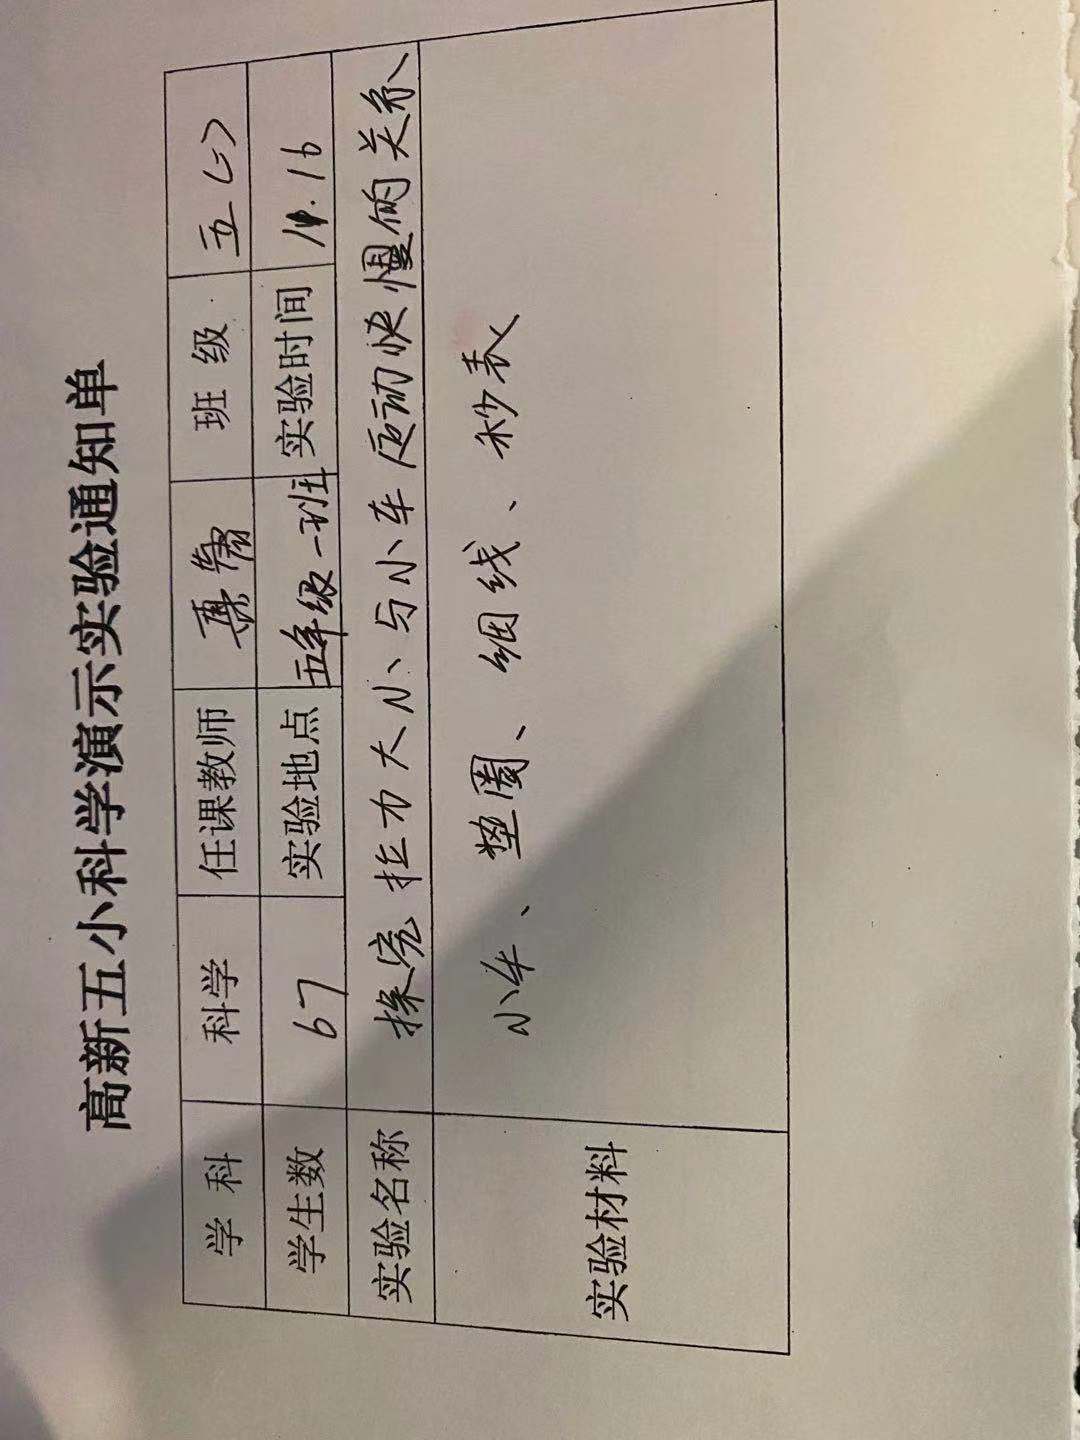 高新五小科学演示实验通知单
学科 科学 任课教师 班级 五(二)
学生数 67 实验地点 五年级一班 实验时间 16
实验名称 探究拉力大小与小车运动快慢的关系
实验材料 小车、垫圈、细线、秒表